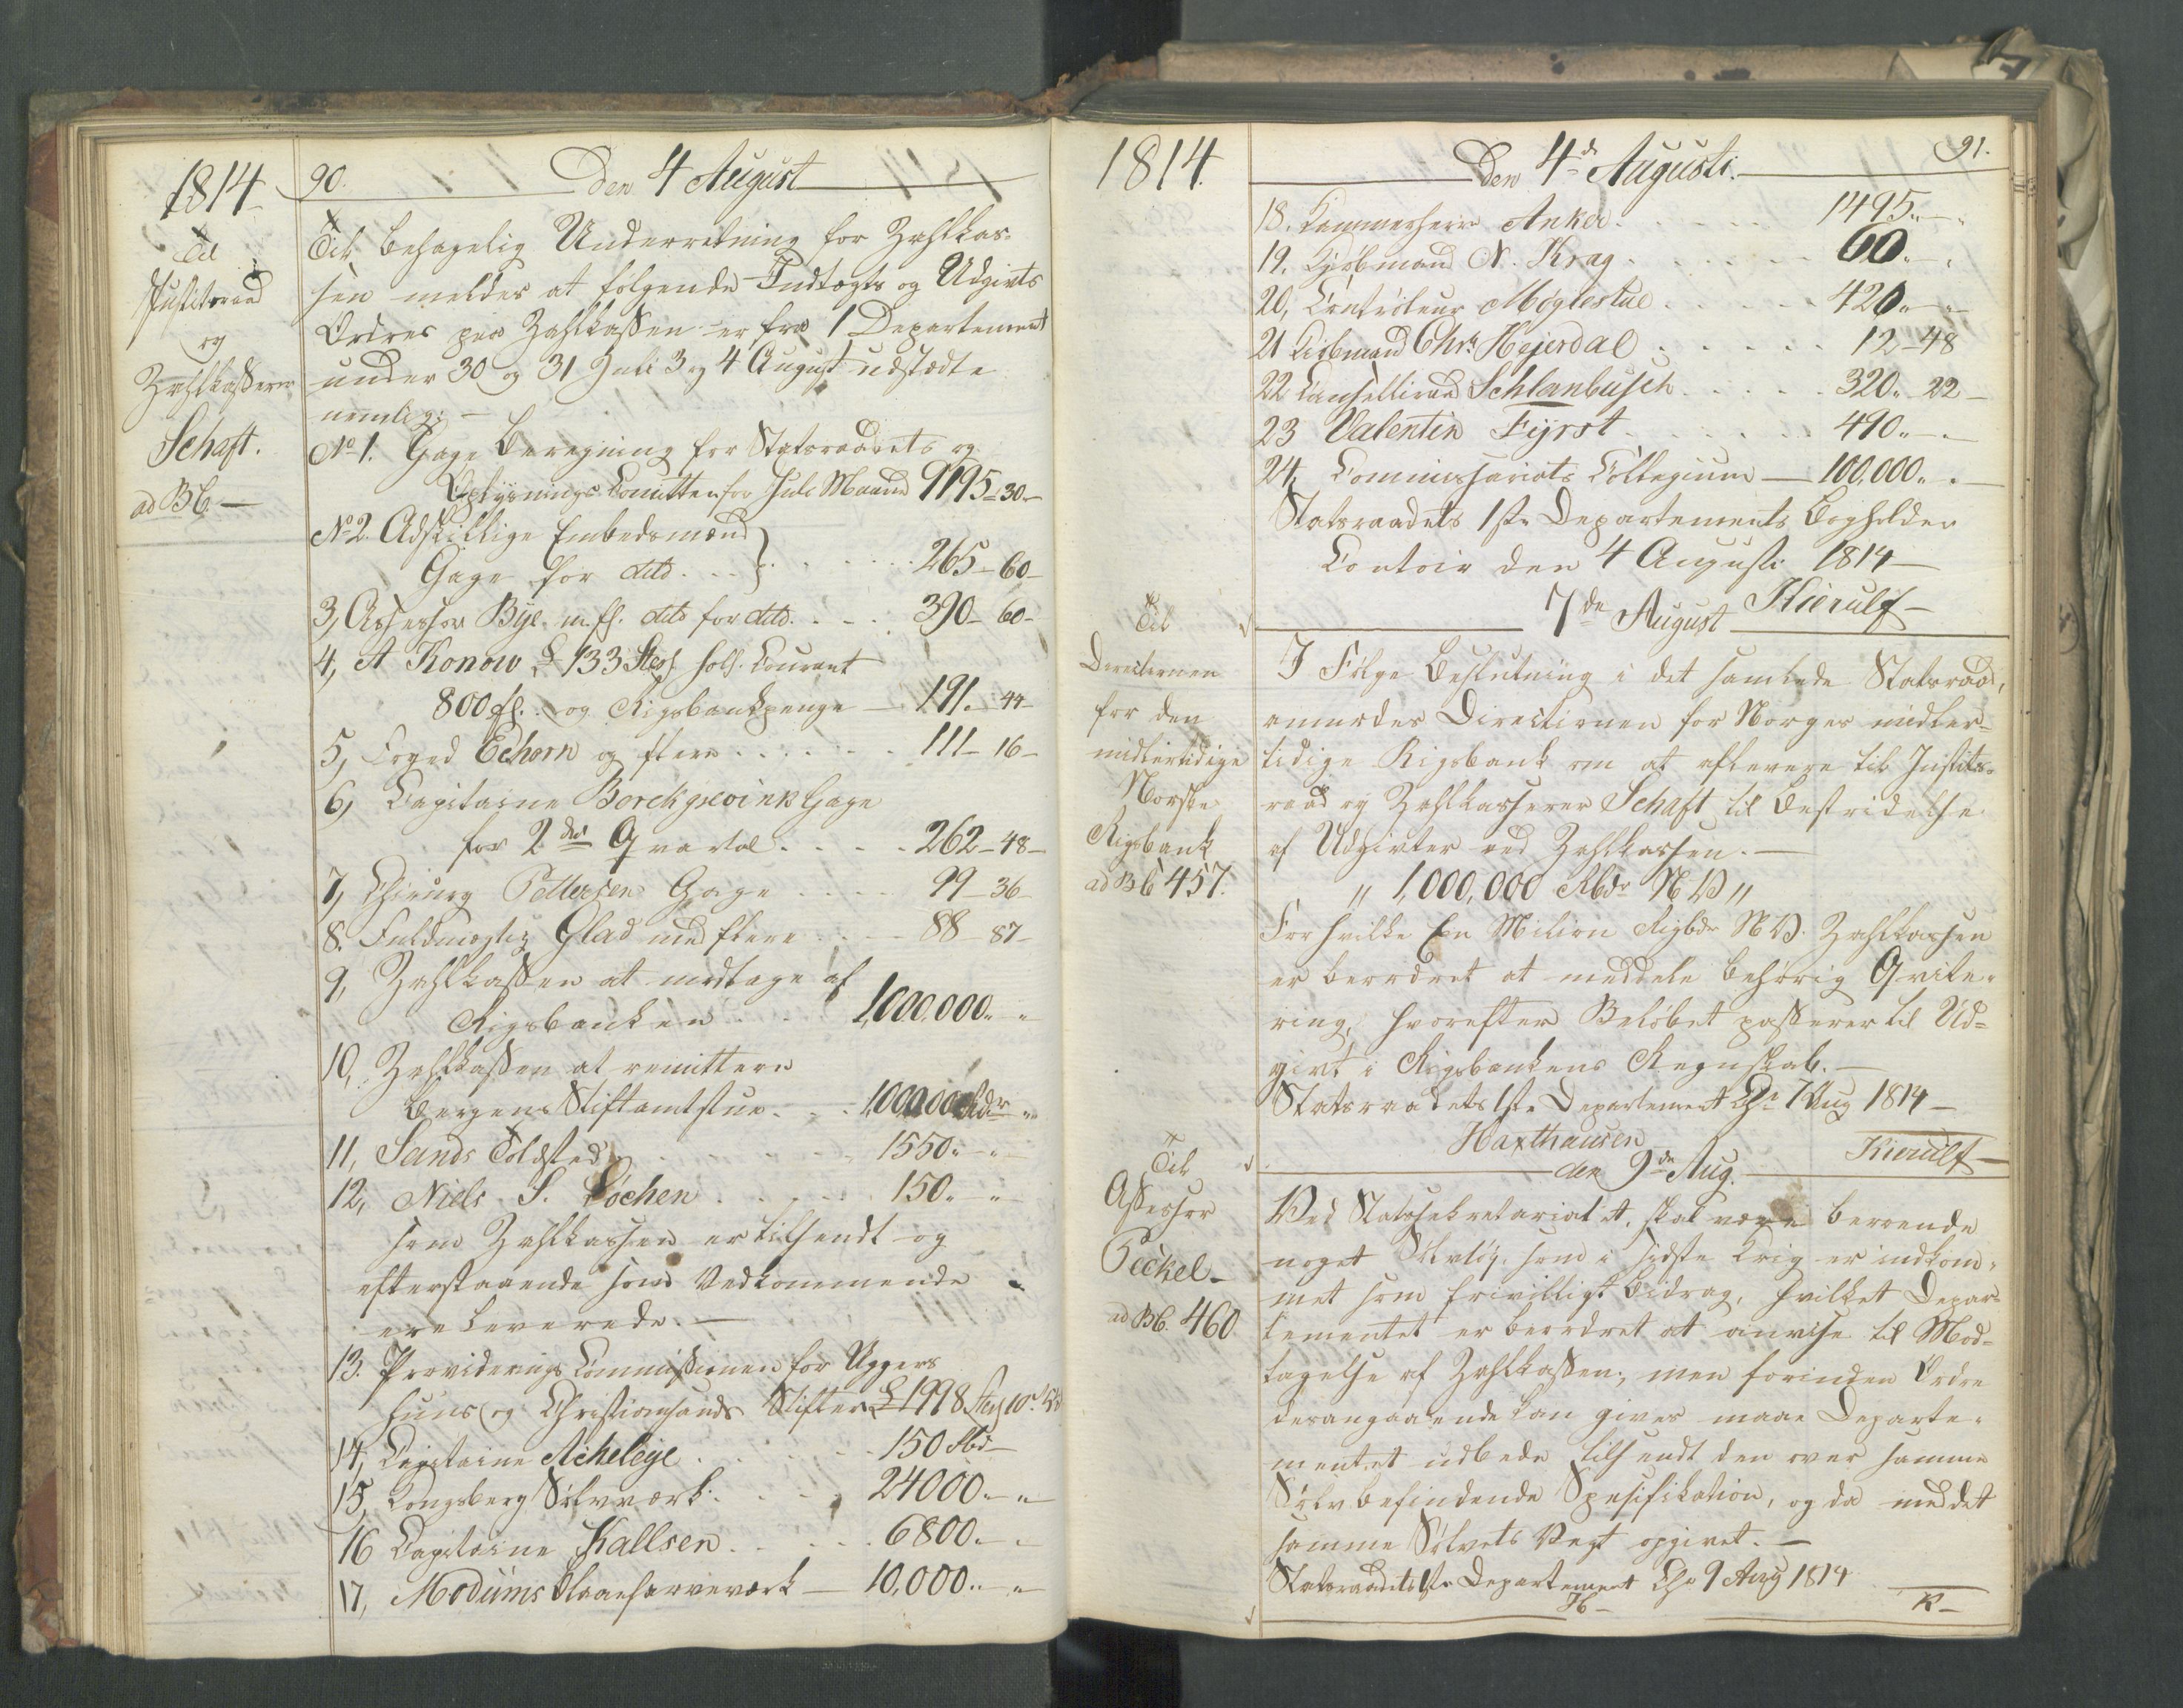 1814
Til
Justitsraad
og
Zahlkasserer
Schaft.
ad B6 —
90. Den 4 August
Til behagelig Underretning for Zahlkas-
sen meldes at følgende Indtægts og Udgivts
Ordres paa Zahlkassen er fra 1 Departement
under 30 og 31 Juli 3 og 4 August udstædte
nemlig: —
No 1. Gage Beregning for Statsraadets og
Oplysnings Comitteen for Juli Maaned 9195 - 30 -
No 2. Adskillige Embedsmænd
Gage for dito . . . 265 - 60 -
3, Assessor Bye m. fl. dito for dito . . . 390 - 60 -
4, A Konow £ 133 Sterl holl. Courant
800 fl. og Rigsbankpenge — 191. - 44 -
5, Foged Echorn og flere . . . . 111 - 16 -
6, Capitaine Borchgrevink Gage
for 2det Qvartal . . . . 262 - 48 -
7, Chirurg Pettersen Gage . . . 99 - 36 -
8. Fuldmægtig Glad med flere . . . 88 - 87 -
9, Zahlkassen at modtage af
Rigsbanken . . . 1,000,000 " "
10, Zahlkassen at remittere
Bergens Stiftamtstue . . . 100,000 Rbdr "
11, Sands Toldsted . . . . 1550 " "
12, Niels S. Lochen . . . . 150 " "
som Zahlkassen er tilsendt og
efterstaaende som Vedkommende
ere leverede. —
13. Provideringscommissionen for Aggers
huus og Christiansands Stifter £ 1998 Sterl 10
14, Capitaine Acheleye . . . 150 Rbd —
15, Kongsberg Sølvværk . . . 24000 " "
16 Capitaine Kallsen . . . . 6800 " "
17, Modums Blaafarveværk — 10,000 " "
1814.
Den 4de Augusti. 91.
18. Kammerherre Anker . . . . 1495 " "
19. Kjøbmand N. Krag . . . . 60 " "
20, Contrôleur Møglestue . . . . 420 " "
21 Kiøbmand Chr. Hejerdal . . . . 12 - 48
22 Cancelliraad Schlanbusch . . . . 320. 22 —
23 Valentin Fyrst . . . . 490 " "
24, Commissariats Collegium — 100,000 " "
Statsraadets 1ste Departements Bogholder
Contoir den 4 Augusti 1814 —
Kierulf —
7de August
Til
Directionen
for den
midlertidige
Norske
Rigsbank
ad B6 457.
I Følge Beslutning i det samlede Statsraad,
anmodes Directionen for Norges midler-
tidige Rigsbank om at aflevere til Justits-
raad og Zahlkasserer Schaft til Bestridelse
af Udgivter ved Zahlkassen. —
" 1,000,000 Rbdr N V "
For hvilke Een Milion Rigbdr N V. Zahlkassen
er beordret at meddele behørig Qvite-
ring, hvorefter Beløbet passerer til Ud-
givt i Rigsbankens Regnskab. —
Statsraadets 1ste Departement Cha 7 Aug 1814 —
Haxthausen Kierulf —
den 9de Aug.
Til
Assessor
Peckel —
ad B6. 460
Ved Statssekretariatet, skal være beroende
noget Sølvtøy, som i sidste Krig er indkom-
met som frivilligt Bidrag, hvilket Depar-
tementet er beordret at anvise til Mod-
tagelse af Zahlkassen; men forinden Ordre
desangaaende kan gives maae Departe-
mentet udbede tilsendt den over samme
Sølv befindende Spesifikation, og da med det
samme Sølvets Vægt opgivet. —
Statsraadets 1ste Departement Cha 9 Aug 1814
H — K —